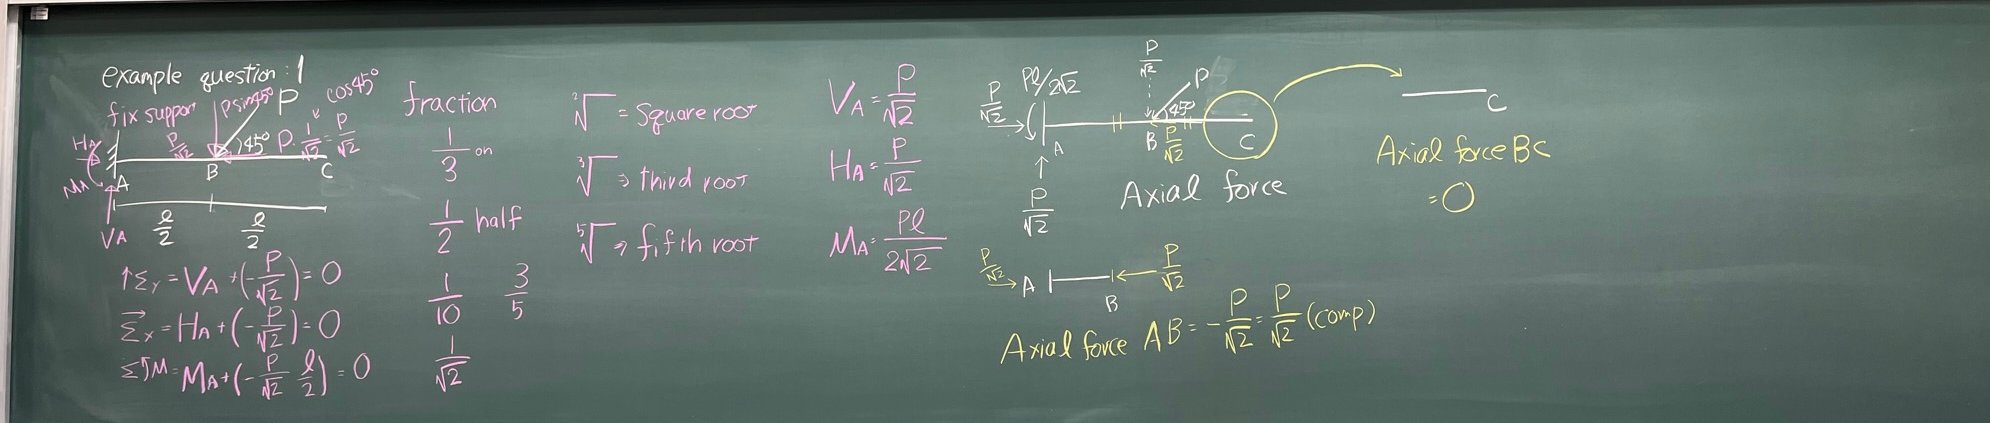 example question : 1
fix support
Psin45°
P
cos45°
P/√2
45°
P·1/√2=P/√2
HA
MA
A
B
C
VA
l/2
l/2
↑Σy=VA+(-P/√2)=0
→Σx=HA+(-P/√2)=0
Σ↰M=MA+(-P/√2 l/2)=0
fraction
1/3 on
1/2 half
1/10
3/5
1/√2
²√ = Square root
³√ ⇒ third root
⁵√ ⇒ fifth root
VA=P/√2
HA=P/√2
MA=Pl/2√2
Pl/2√2
P/√2
P/√2
P
45°
A
B
P/√2
C
P/√2
Axial force
P/√2 → A
B
← P/√2
Axial force AB=-P/√2=P/√2 (comp)
C
Axial force BC
=0